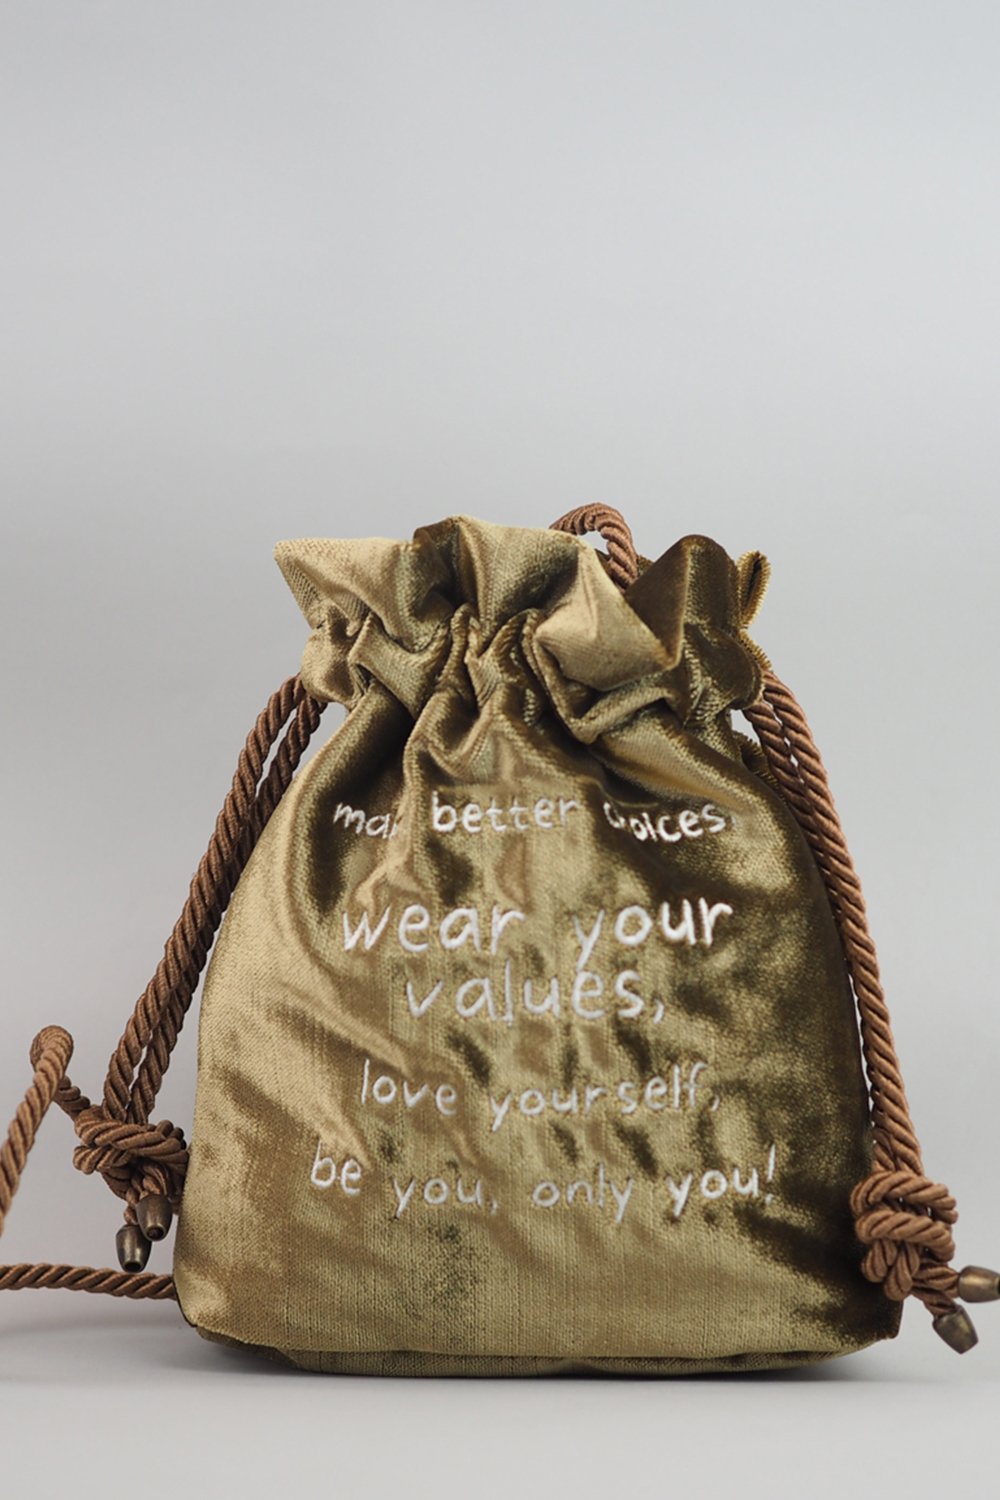 better choices
wear your
values,
love yourself,
be you, only you!